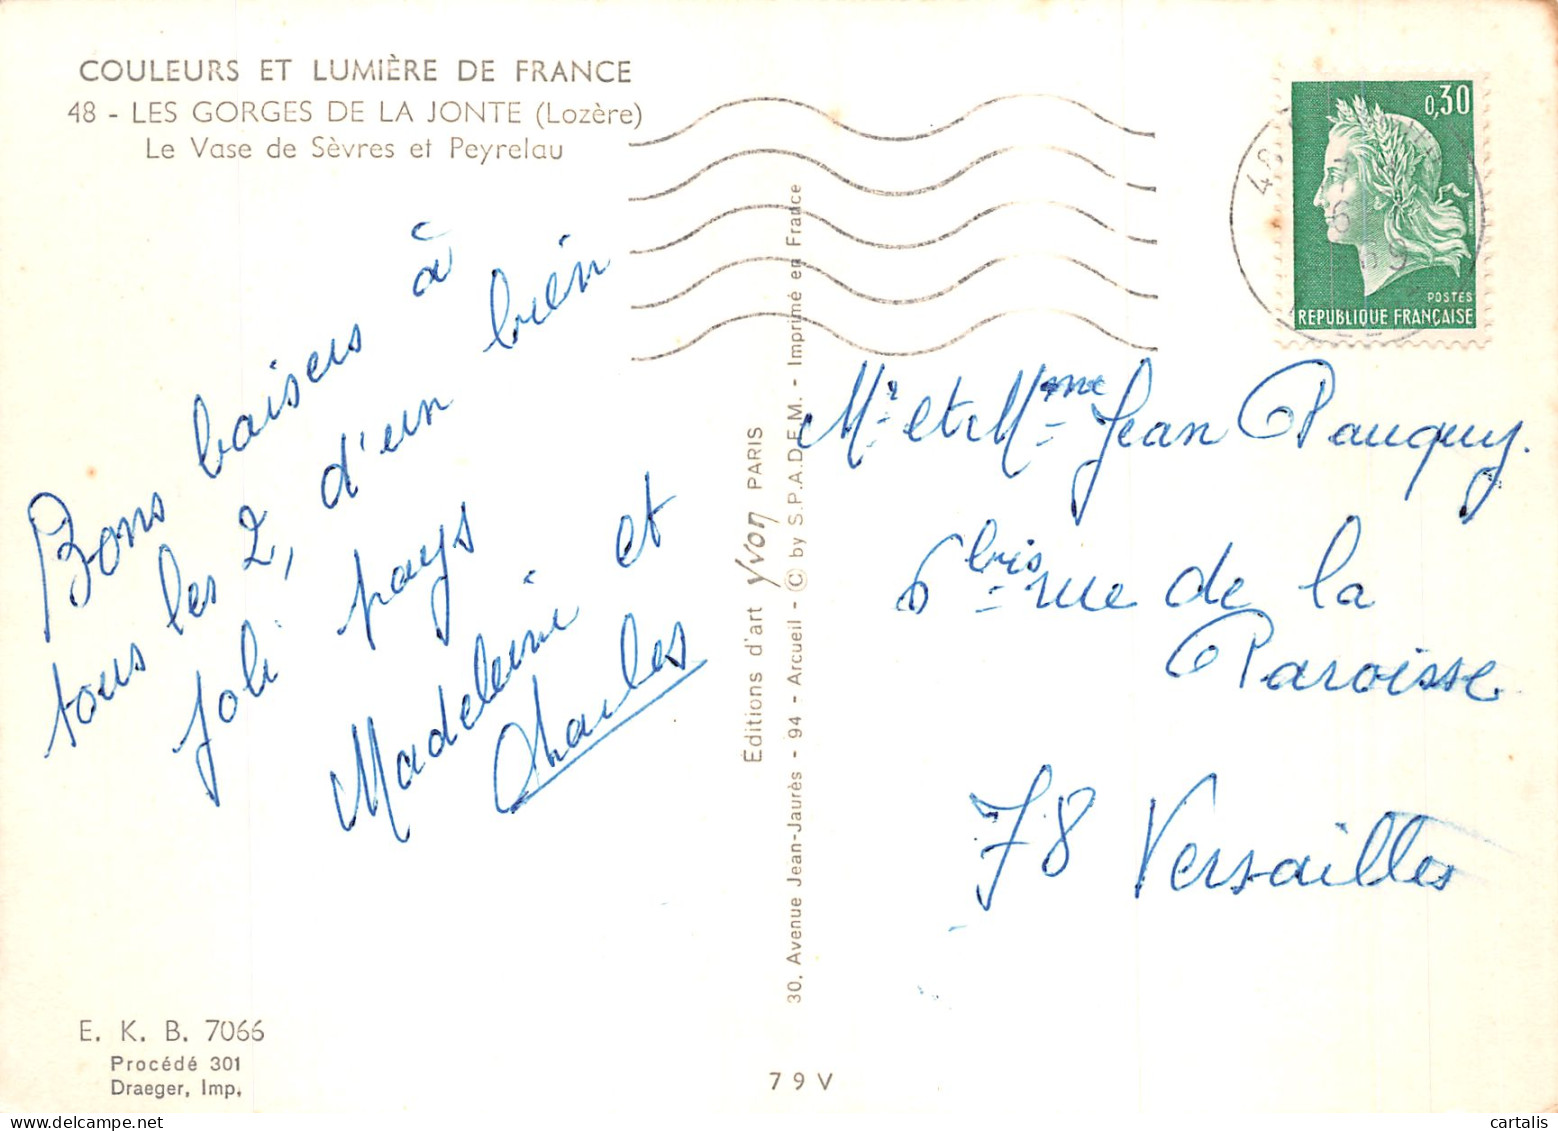 COULEURS ET LUMIÈRE DE FRANCE
48 - LES GORGES DE LA JONTE (Lozère)
Le Vase de Sèvres et Peyrelau
Bons baisers à
tous les 2, d'un bien
joli pays
Madeleine et
Charles
E. K. B. 7066
Procédé 301
Draeger, Imp.
Éditions d'art Yvon PARIS
30, Avenue Jean-Jaurès - 94 - Arcueil - © by S.P.A.D.E.M. - Imprimé en France
79V
0,30
POSTES
REPUBLIQUE FRANÇAISE
48
69
Mr et Mme Jean Pauquy.
6 bis rue de la
Paroisse
78 Versailles
cartalis